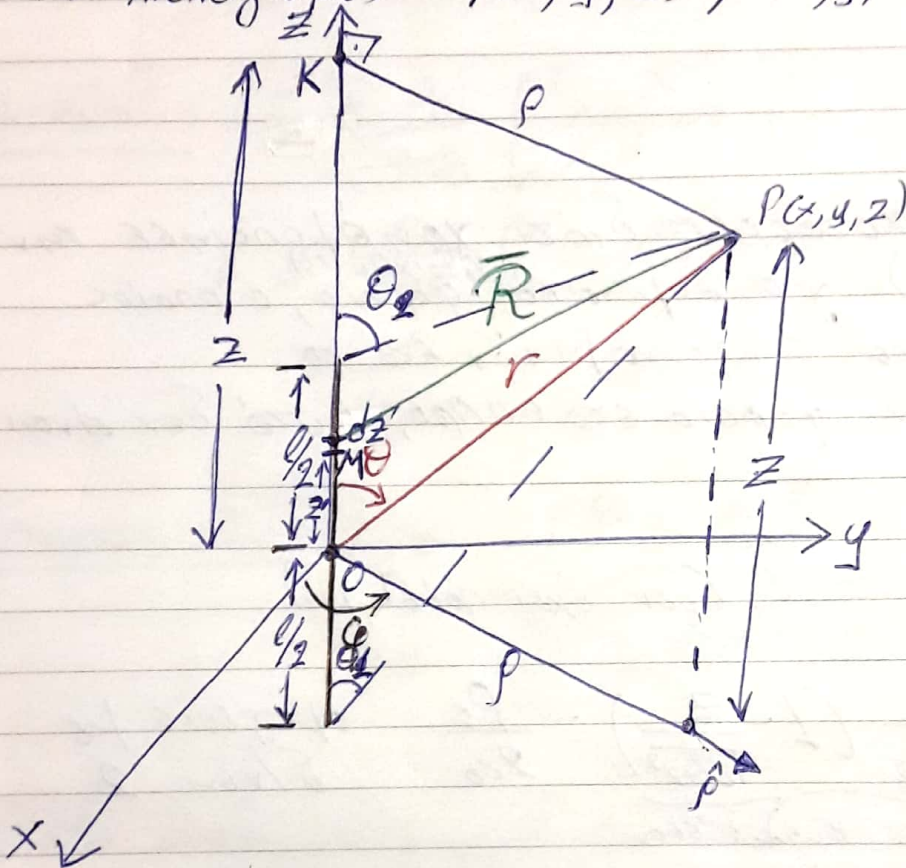 z
K
ρ
P(x,y,z)
θ₂
R̄
r
z
dz'
l/2
M
θ
z'
z
y
O
φ
l/2
θ₁
ρ
ρ̂
x